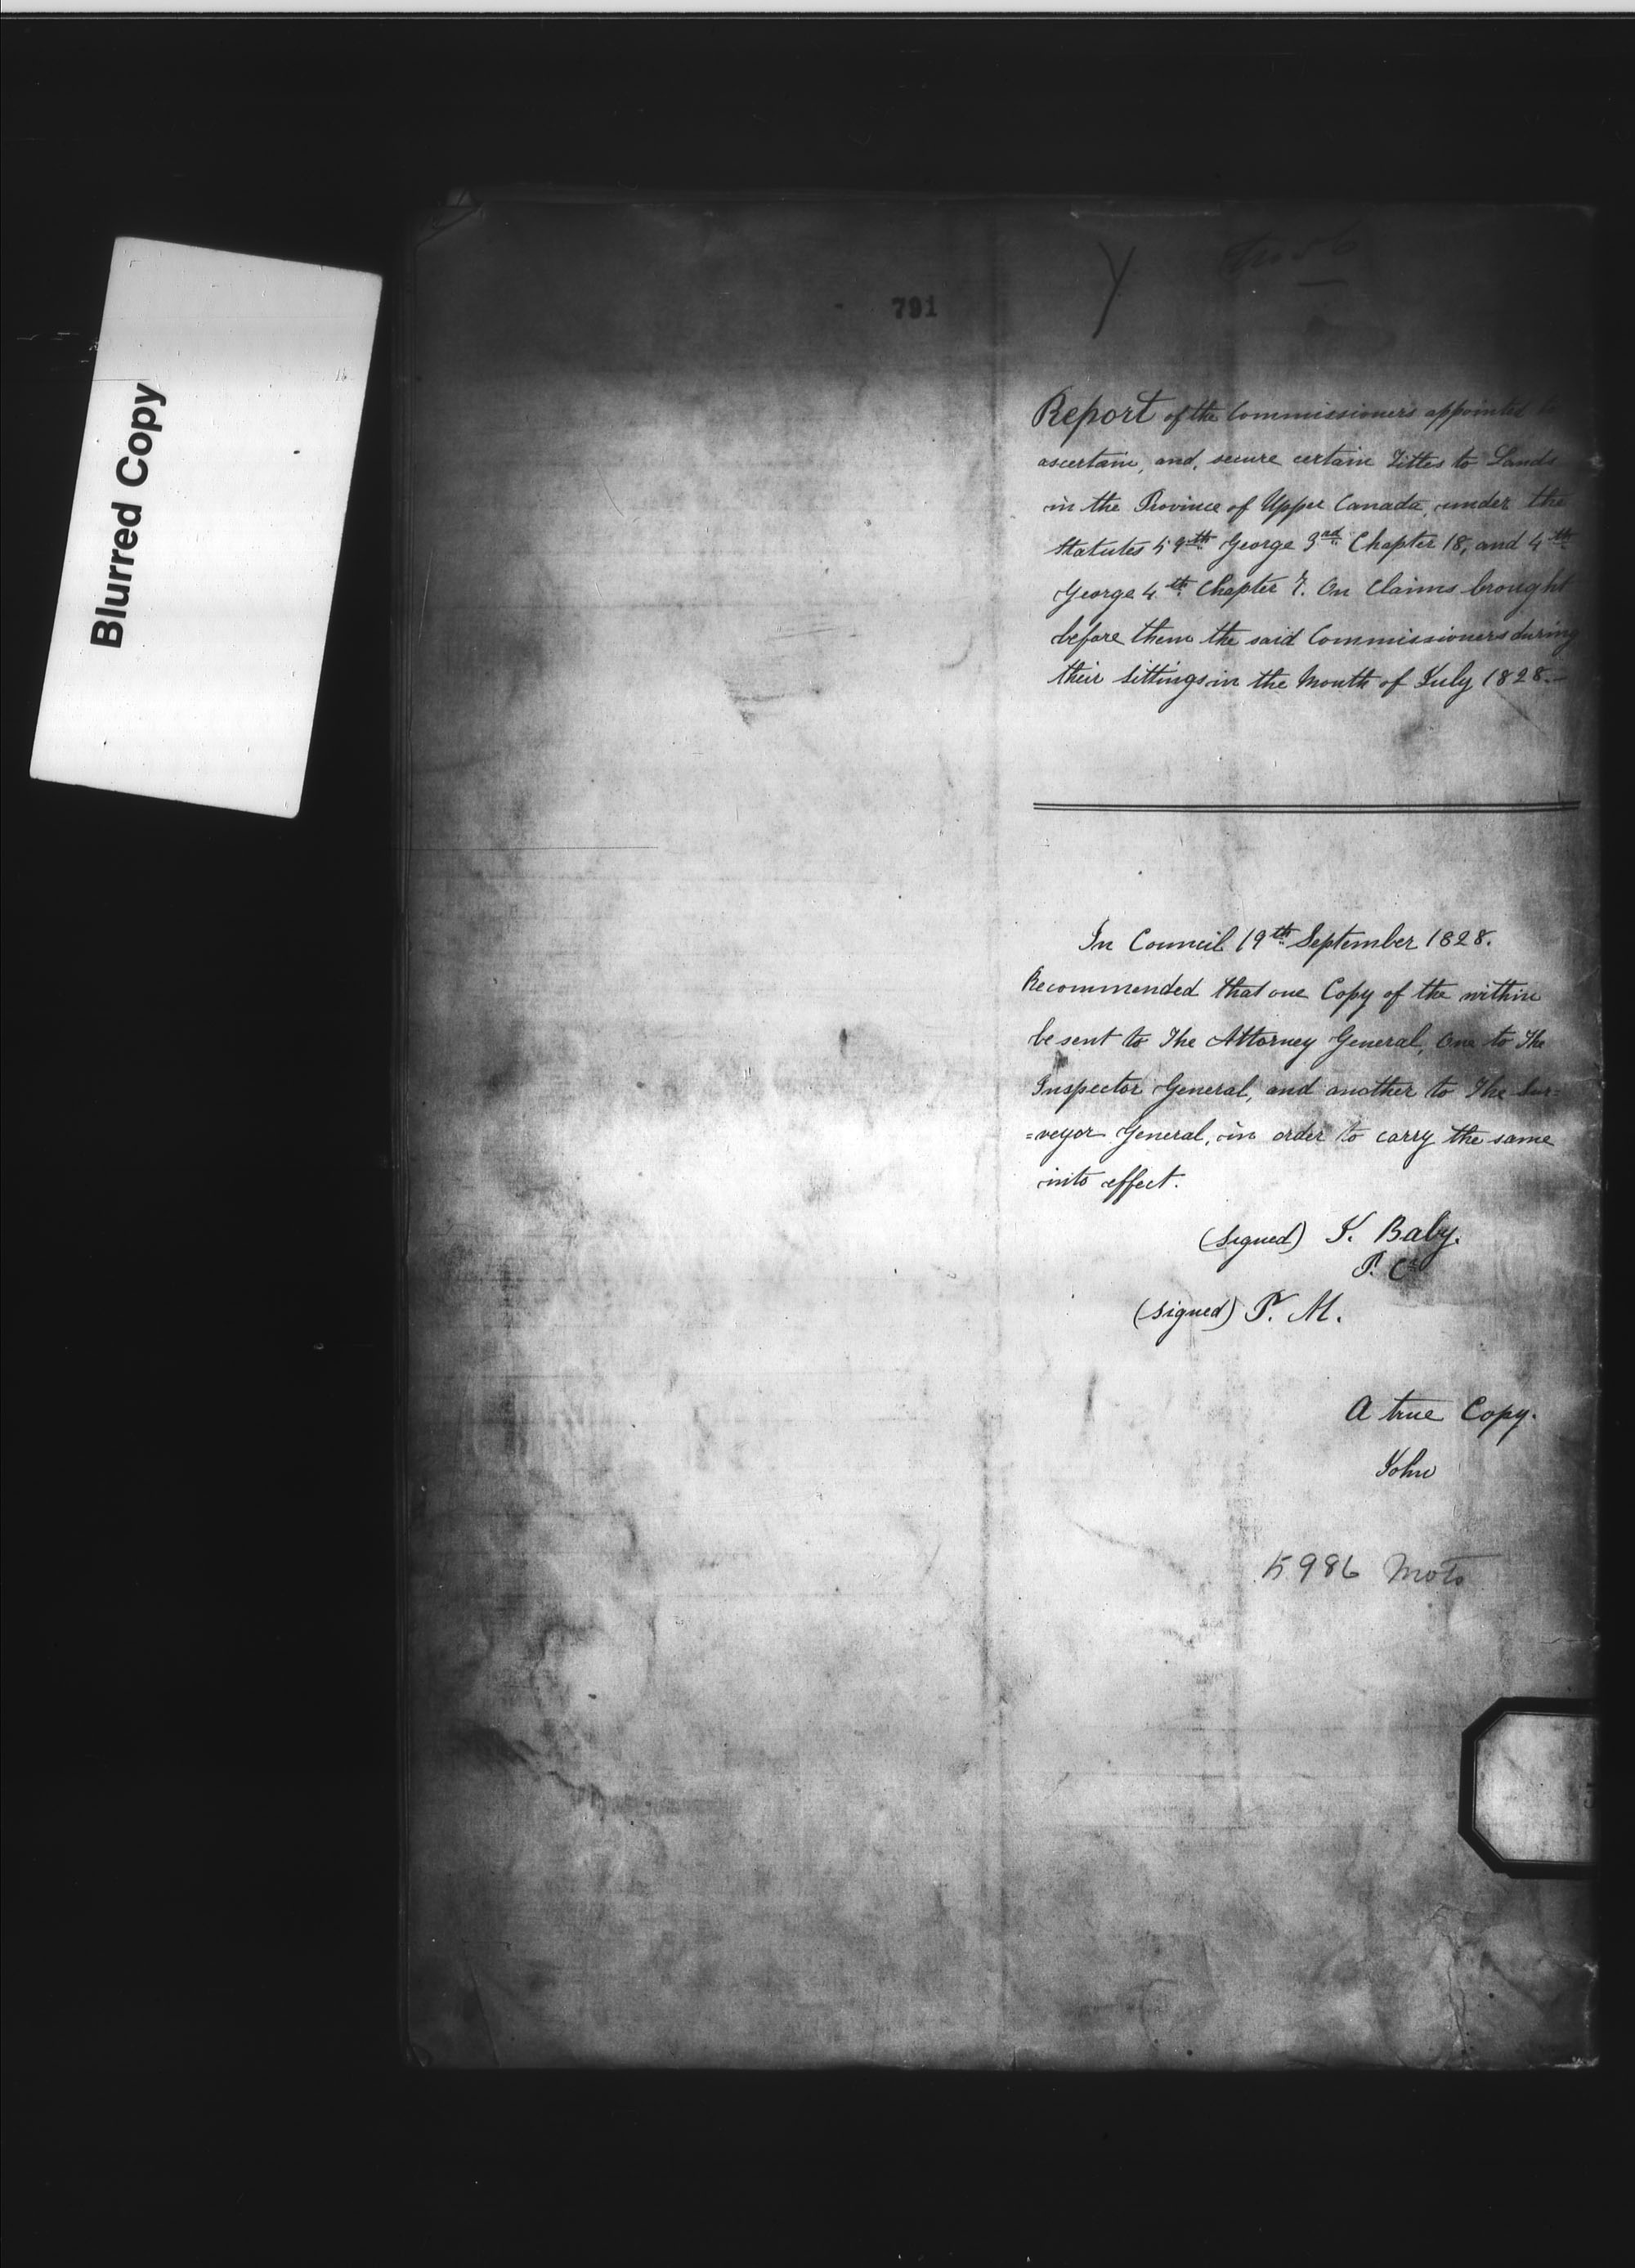 Blurred Copy
791
Y
Report of the Commissioners appointed to
ascertain, and, secure certain Titles to Lands
in the Province of Upper Canada, under the
Statutes 59th George 3rd Chapter 18, and 4th
George 4th Chapter 7. On Claims brought
before them the said Commissioners during
their Sittings in the Month of July 1828.-
In Council 19th September 1828.
Recommended that one Copy of the within
be sent to The Attorney General, One to The
Inspector General, and another to The Sur=
=veyor General, in order to carry the same
into effect.
(signed) J. Baby.
P. C.
(signed) P. M.
A true Copy.
John
5986